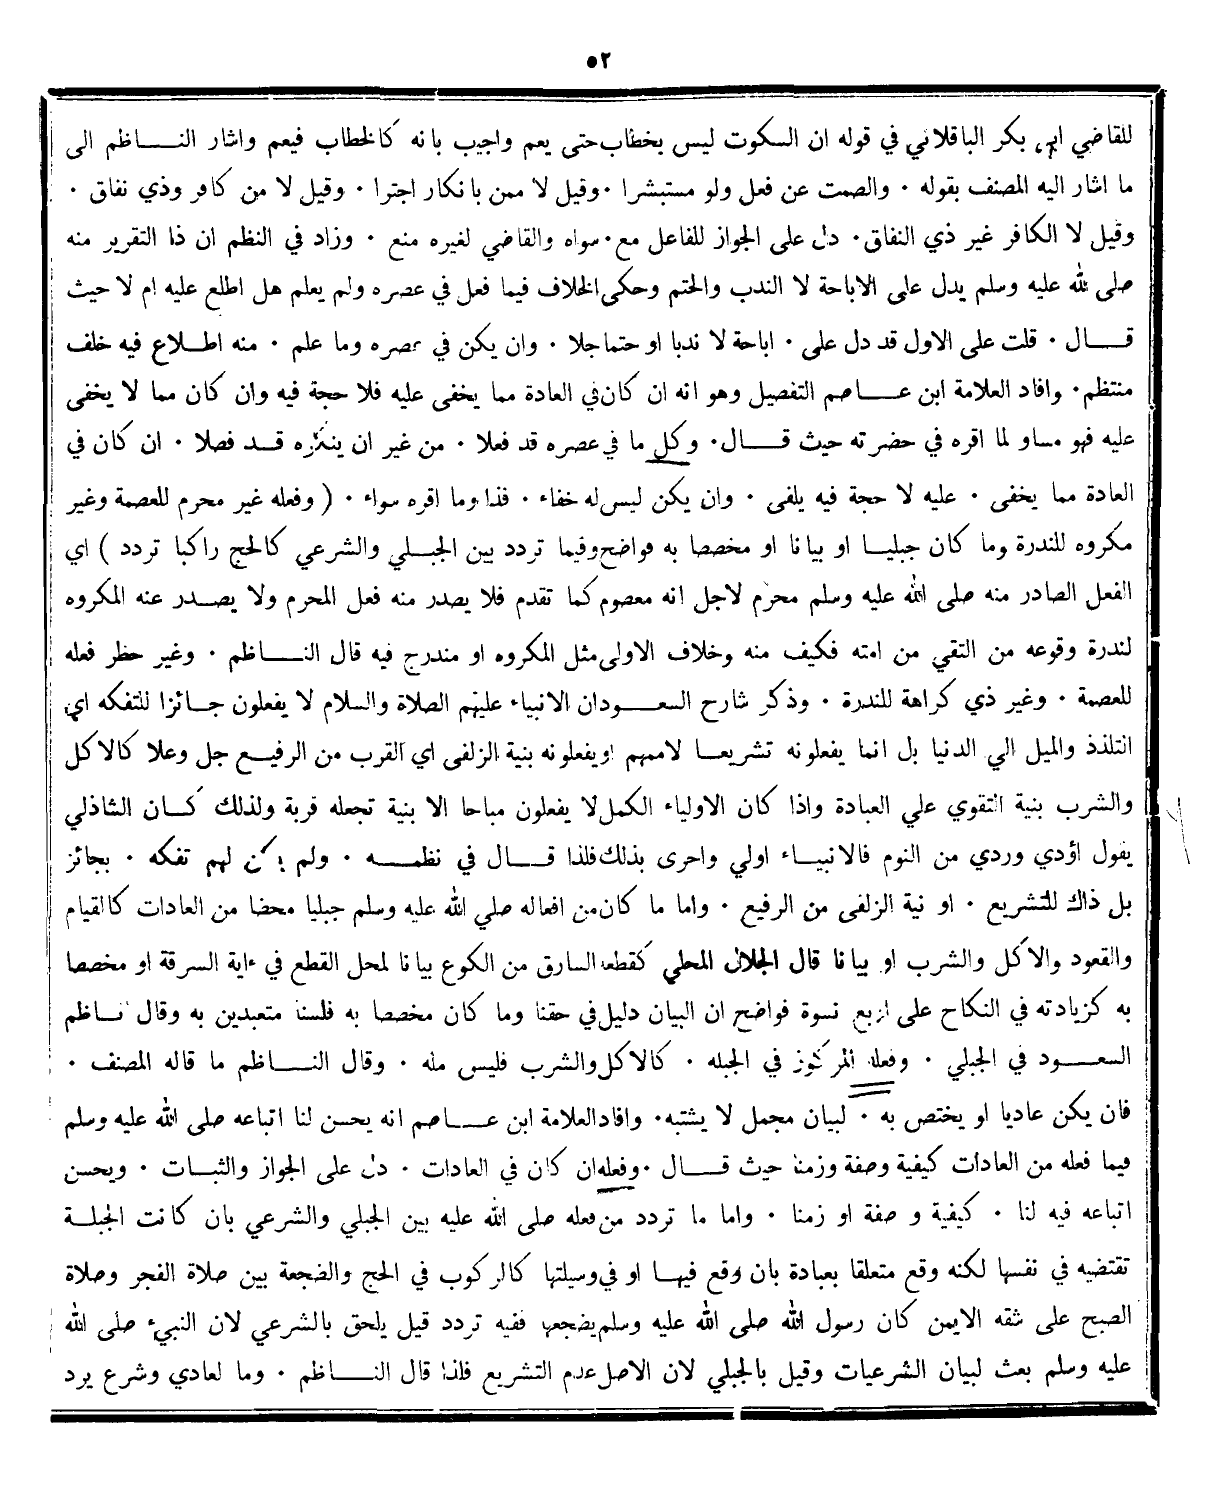 ٥٢
للقاضي ابي بكر الباقلاني في قوله ان السكوت ليس بخطاب حتى يعم واجيب بانه كالخطاب فيعم واشار النـــاظم الى
ما اشار اليه المصنف بقوله ٠ والصمت عن فعل ولو مستبشرا ٠ وقيل لا ممن بانكار اجترا ٠ وقيل لا من كافر وذي نفاق ٠
وقيل لا الكافر غير ذي النفاق ٠ دل على الجواز للفاعل مع ٠ سواه والقاضي لغيره منع ٠ وزاد في النظم ان ذا التقرير منه
صلى الله عليه وسلم يدل على الاباحة لا الندب والحتم وحكى الخلاف فيما فعل في عصره ولم يعلم هل اطلع عليه ام لا حيث
قـــال ٠ قلت على الاول قد دل على ٠ اباحة لا ندبا او حتما جلا ٠ وان يكن في عصره وما علم ٠ منه اطـلاع فيه خلف
منتظم ٠ وافاد العلامة ابن عـــاصم التفصيل وهو انه ان كان في العادة مما يخفى عليه فلا حجة فيه وان كان مما لا يخفى
عليه فهو مساو لما اقره في حضرته حيث قـــال ٠ وكل ما في عصره قد فعلا ٠ من غير ان ينكره قـد فصلا ٠ ان كان في
العادة مما يخفى ٠ عليه لا حجة فيه يلفى ٠ وان يكن ليس له خفاء ٠ فذا وما اقره سواء ٠ ( وفعله غير محرم للعصمة وغير
مكروه للندرة وما كان جبليـا او بيانا او مخصصا به فواضح وفيما تردد بين الجبـلي والشرعي كالحج راكبا تردد ) اي
الفعل الصادر منه صلى الله عليه وسلم محرم لاجل انه معصوم كما تقدم فلا يصدر منه فعل المحرم ولا يصـدر عنه المكروه
لندرة وقوعه من التقي من امته فكيف منه وخلاف الاولى مثل المكروه او مندرج فيه قال النـــاظم ٠ وغير حظر فعله
للعصمة ٠ وغير ذي كراهة للندرة ٠ وذكر شارح السعـــود ان الانبياء عليهم الصلاة والسلام لا يفعلون جـائزا للتفكه اي
التلذذ والميل الي الدنيا بل انما يفعلونه تشريعـا لاممهم او يفعلونه بنية الزلفى اي القرب من الرفيـع جل وعلا كالاكل
والشرب بنية التقوي علي العبادة واذا كان الاولياء الكمل لا يفعلون مباحا الا بنية تجعله قربة ولذلك كـان الشاذلي
يقول اؤدي وردي من النوم فالانبيـــاء اولي واحرى بذلك فلذا قـــال في نظمـــه ٠ ولم يكن لهم تفكه ٠ بجائز
بل ذاك للتشريع ٠ او نية الزلفى من الرفيع ٠ واما ما كان من افعاله صلي الله عليه وسلم جبليا محضا من العادات كالقيام
والقعود والاكل والشرب او بيانا قال الجلال المحلي كقطعه السارق من الكوع بيانا لمحل القطع في ءاية السرقة او مخصصا
به كزيادته في النكاح على اربع نسوة فواضح ان البيان دليل في حقنا وما كان مخصصا به فلسنا متعبدين به وقال نـاظم
السعـــود في الجبلي ٠ وفعله المركوز في الجبله ٠ كالاكل والشرب فليس مله ٠ وقال النـــاظم ما قاله المصنف ٠
فان يكن عاديا او يختص به ٠ لبيان مجمل لا يشتبه ٠ وافاد العلامة ابن عـــاصم انه يحسن لنا اتباعه صلى الله عليه وسلم
فيما فعله من العادات كيفية وصفة وزمنا حيث قـــال ٠ وفعله ان كان في العادات ٠ دل على الجواز والثبـات ٠ ويحسن
اتباعه فيه لنا ٠ كيفية و صفة او زمنا ٠ واما ما تردد من فعله صلى الله عليه بين الجبلي والشرعي بان كانت الجبلـة
تقتضيه في نفسها لكنه وقع متعلقا بعبادة بان وقع فيهـا او في وسيلتها كالركوب في الحج والضجعة بين صلاة الفجر وصلاة
الصبح على شقه الايمن كان رسول الله صلى الله عليه وسلم يضجعها ففيه تردد قيل يلحق بالشرعي لان النبيء صلى الله
عليه وسلم بعث لبيان الشرعيات وقيل بالجبلي لان الاصل عدم التشريع فلذا قال النـــاظم ٠ وما لعادي وشرع يرد